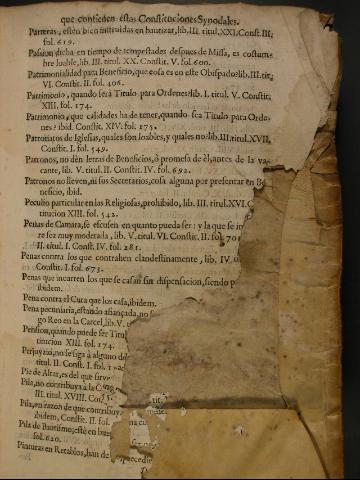 que contienen estas Constituciones Synodales.
Parteras, estèn bien instruidas en bautizar, lib. III. titul. XXI. Const. III.
fol. 619.
Passion dicha en tiempo de tempestades despues de Missa, es costum-
bre loable, lib. III. titul. XX. Constit. V. fol. 600.
Patrimonialidad para Beneficio, que cosa es en este Obispado: lib. III. tit.
VI. Constit. II. fol. 406.
Patrimonio, quando serà Titulo para Ordenes: lib. I. titul. V. Constit.
XIII. fol. 174.
Patrimonio, que calidades ha de tener, quando sea Titulo para Orde-
nes? ibid. Constit. XIV. fol. 175.
de Iglesias, quales son loables, y quales no: lib. III. titul. XVII.
Constit. I. fol. 549.
Patronos, no dèn letras de Beneficios, ò promesa de èl, antes de la va-
cante, lib. V. titul. II. Constit. IV. fol. 692.
Patronos no lleven, ni sus Secretarios, cosa alguna por presentar en Be
neficio, ibid.
Peculio particular en las Religiosas, prohibido, lib. III. titul. XVI. C
titucion XIII. fol. 542.
Penas de Camara, se escusen en quanto pueda ser: y la que se i
re sea muy moderada, lib. V. titul. VI. Constit. II. fol. 70
II. titul. I. Const. IV. fol. 281.
Penas contra los que contrahen clandestinamente, lib. IV. t
Constit. I. fol. 673.
Penas que incurren los que se casan sin dispensacion, siendo p
ibidem.
Pena contra el Cura que los casa, ibidem.
Pena pecuniaria, estando afiançada, no
go Reo en la Carcel, lib. V. t
Pension, quando puede ser Titul
titucion XIII. fol. 174.
Perjuyzio, no se siga à alguno d
titul. II. Const. I. fol.
Pie de Altar, es del que sirve
Pila, no contribuya à la
III. titul. XVIII. Con
Pila, en razon de que contribuya
ibidem, Constit. II. fol.
Pila de Bautismo, estè en
fol. 620.
Pinturas en Retablos, han de